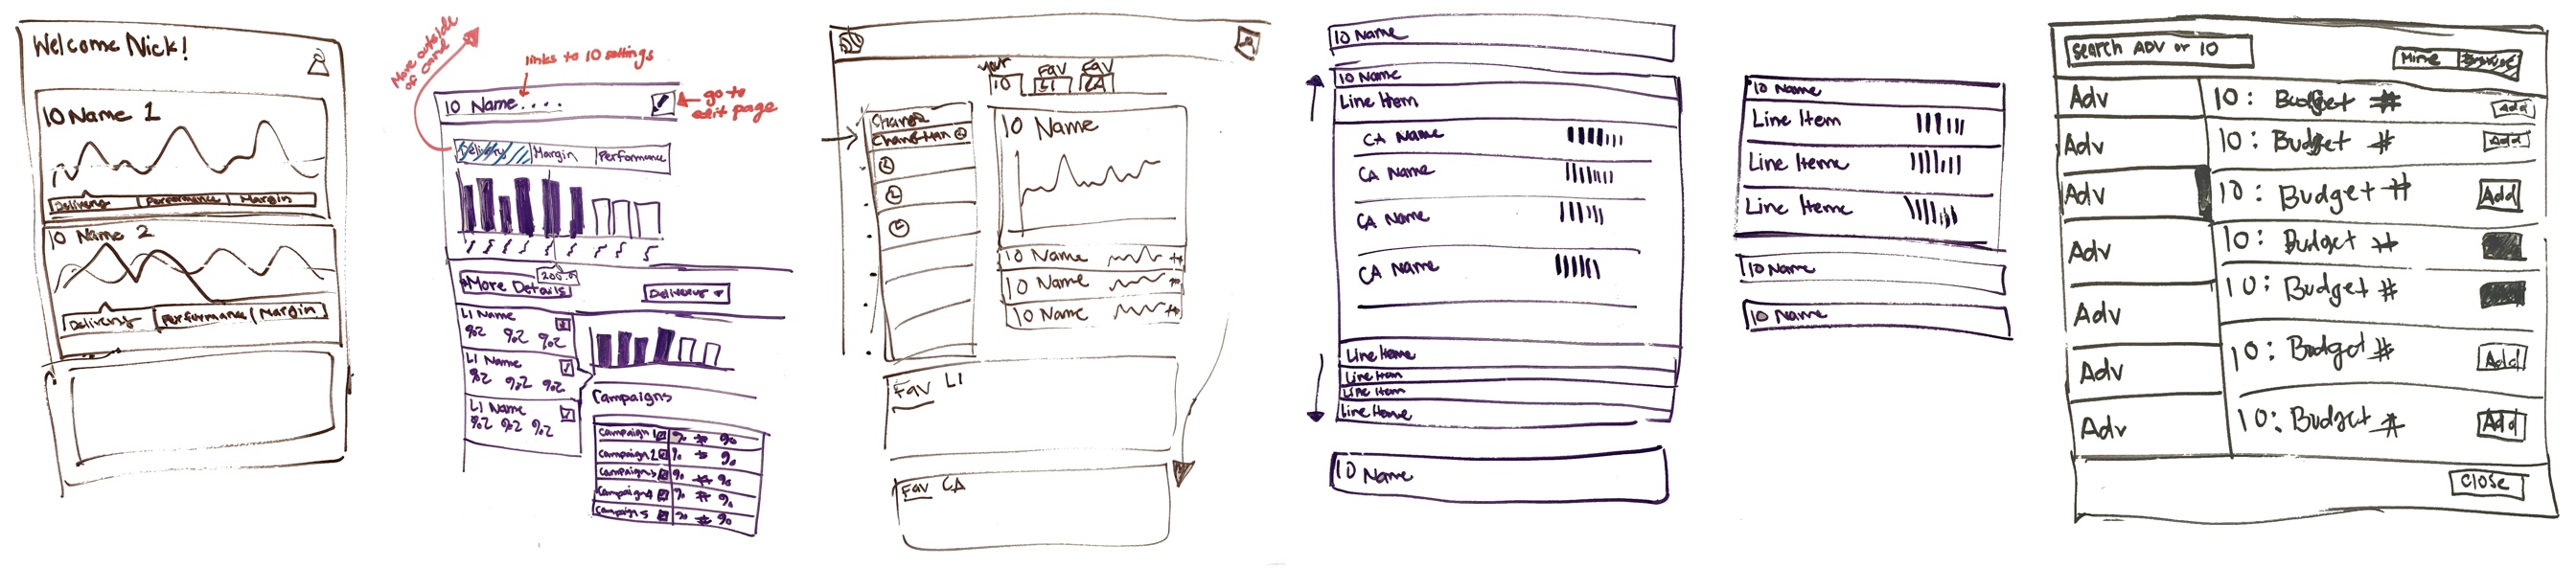 Welcome Nick!
IO Name 1
Delivery Performance Margin
IO Name 2
Delivery Performance Margin
Move outside of card
links to IO settings
IO Name....
go to edit page
Delivery Margin Performance
More Details
Delivery
LI Name
%2 %2 %2
LI Name
%2 %2 %2
LI Name
%2 %2 %2
Campaigns
Campaign 1 % # %
Campaign 2 % # %
Campaign 3 % # %
Campaign 4 % # %
Campaign 5 % # %
your IO
Fav LI
Fav CA
Change
IO Name
IO Name
IO Name
IO Name
Fav LI
Fav CA
IO Name
IO Name
Line Item
CA Name
CA Name
CA Name
CA Name
Line Item
Line Item
Line Item
Line Item
IO Name
IO Name
Line Item
Line Item
Line Item
IO Name
IO Name
search ADV or IO
Mine
Adv
Adv
Adv
Adv
Adv
Adv
Adv
IO: Budget # Add
IO: Budget # Add
IO: Budget # Add
IO: Budget #
IO: Budget #
IO: Budget # Add
IO: Budget # Add
Close